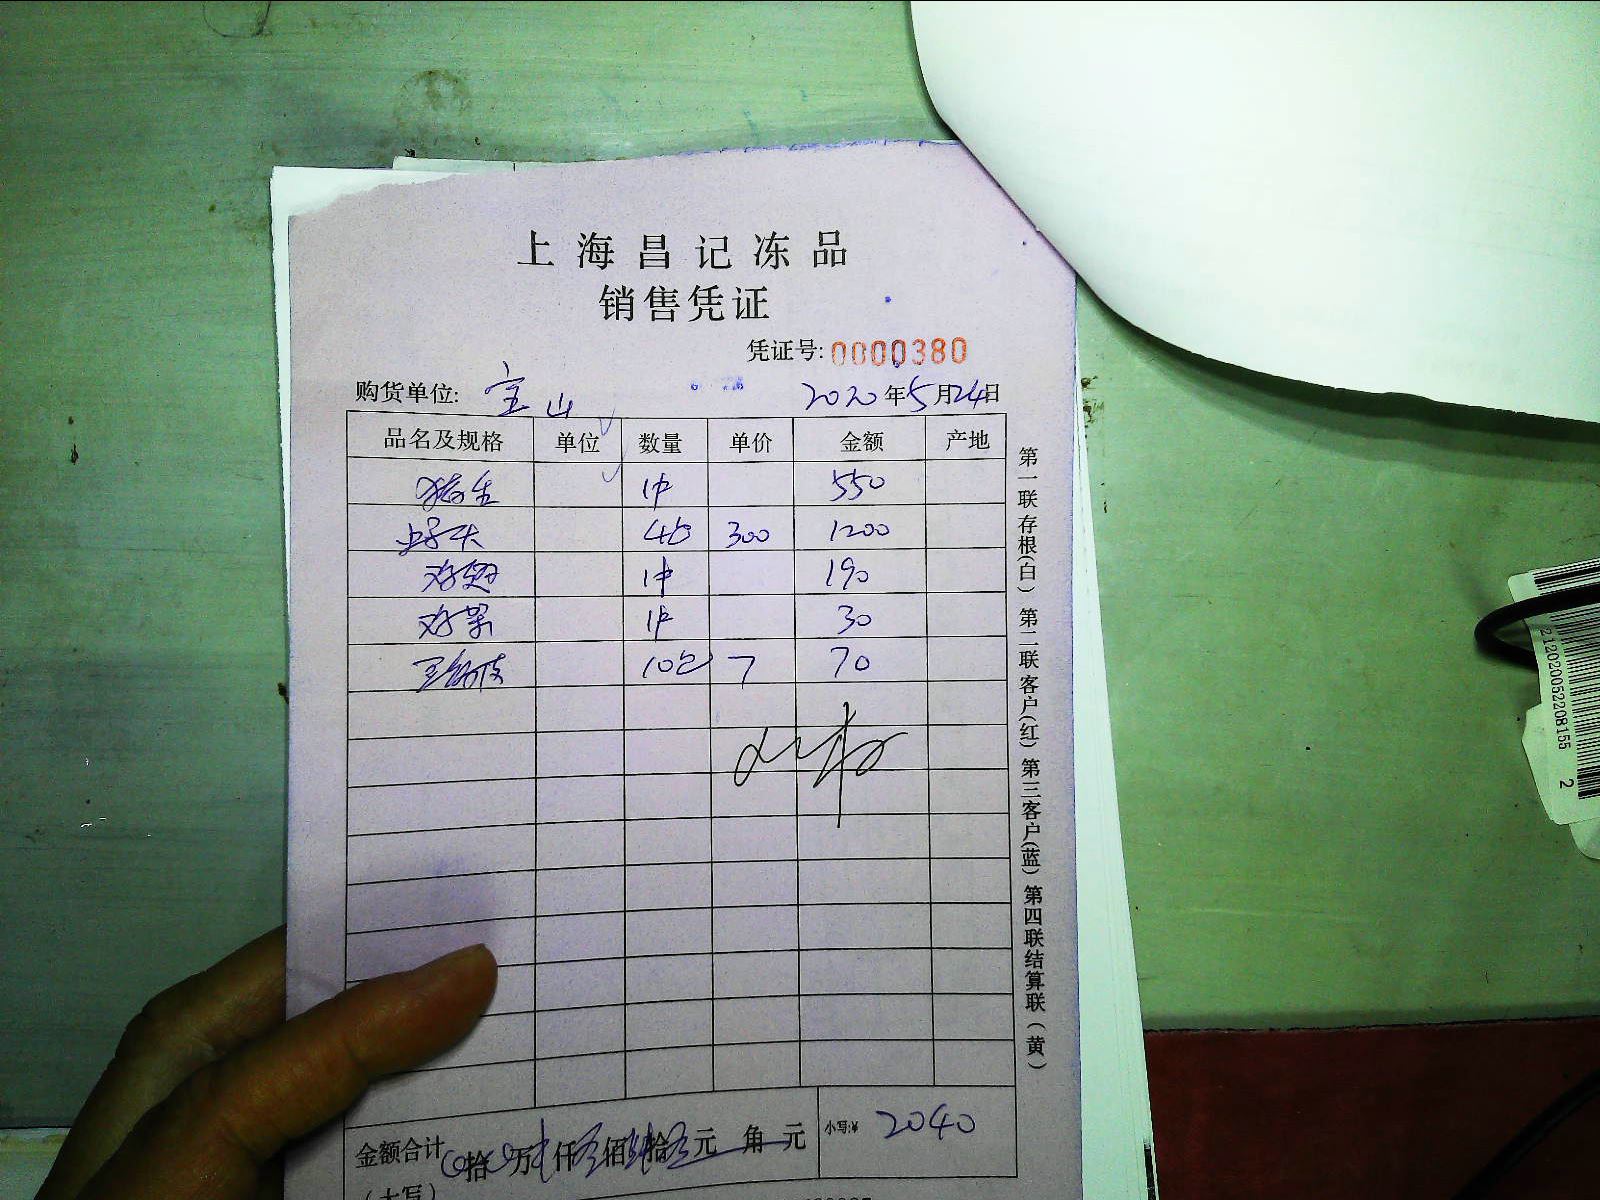 上海昌记冻品
销售凭证
凭证号: 0000380
购货单位: 宝山 2020年5月24日
品名及规格 单位 数量 单价 金额 产地
1件 550
4包 300 1200
鸡翅 1件 190
鸡架 1件 30
10包 7 70
金额合计 拾 万 仟 佰 拾 元 角 元 小写:¥ 2040
(大写)
第一联存根(白) 第二联客户(红) 第三客户(蓝) 第四联结算联(黄)
212020052208155 2